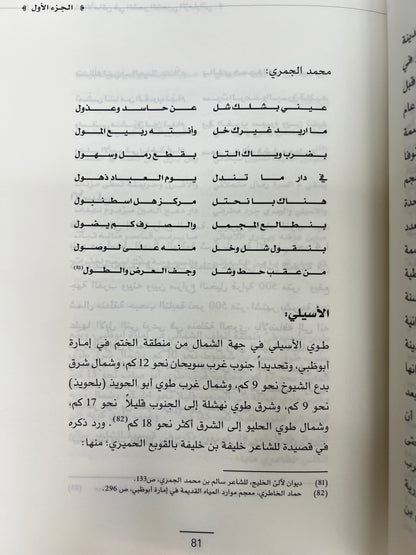 الجزء الأول
محمد الجمري:
عيني بشلك شل عن حاسد وعذول
ما اريد غيرك خل وأنته ربيع المول
بضرب وياك التل بقطع رمل وسهول
في دار ما تندل يوم العباد ذهول
هناك با نحتل مركز هل سطنبول
بنطالع المجمل والصرف كم يضول
بنقول شل وخل منه على لوصول
من عقب حط وشل وجف العرض والطول(81)
الأسيلي:
طوي الأسيلي في جهة الشمال من منطقة الختم في إمارة
أبوظبي، وتحديداً جنوب غرب سويحان نحو 12 كم، وشمال شرق
بدع الشيوخ نحو 9 كم، وشمال غرب طوي أبو الحويذ (بلحويذ)
نحو 9 كم، وشرق طوي نهشلة إلى الجنوب قليلاً نحو 17 كم،
وشمال طوي الحليو إلى الشرق أكثر نحو 18 كم(82). ورد ذكره
في قصيدة للشاعر خليفة بن خليفة بالقويع الحميري؛ منها:
(81) ديوان لآلئ الخليج، للشاعر سالم بن محمد الجمري، ص133.
(82) حماد الخاطري، معجم موارد المياه القديمة في إمارة أبوظبي، ص 296.
81